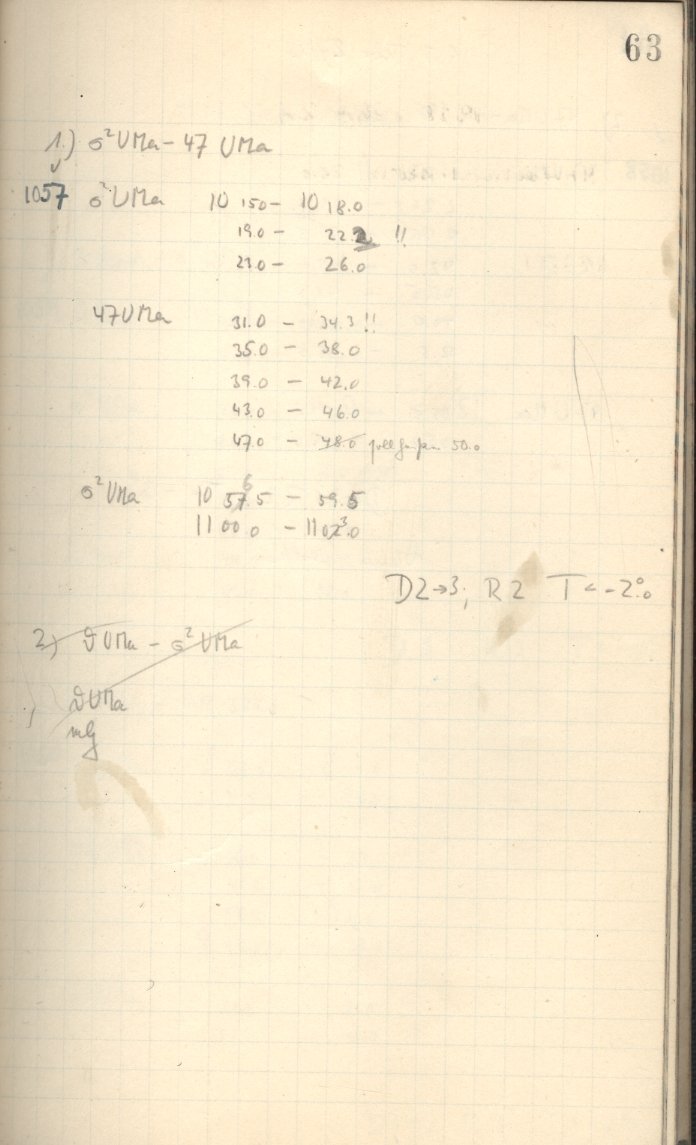 63
1.) σ² UMa - 47 UMa
1057 σ² UMa 10 15.0 - 10 18.0
19.0 - 22.2 !!
23.0 - 26.0
47 UMa 31.0 - 34.3 !!
35.0 - 38.0
39.0 - 42.0
43.0 - 46.0
47.0 - 48.0 50.0
σ² UMa 10 56.5 - 59.5
11 00.0 - 11 03.0
D2→3, R2 T < -2°.0
2) ϑ UMa - σ² UMa
ϑ UMa